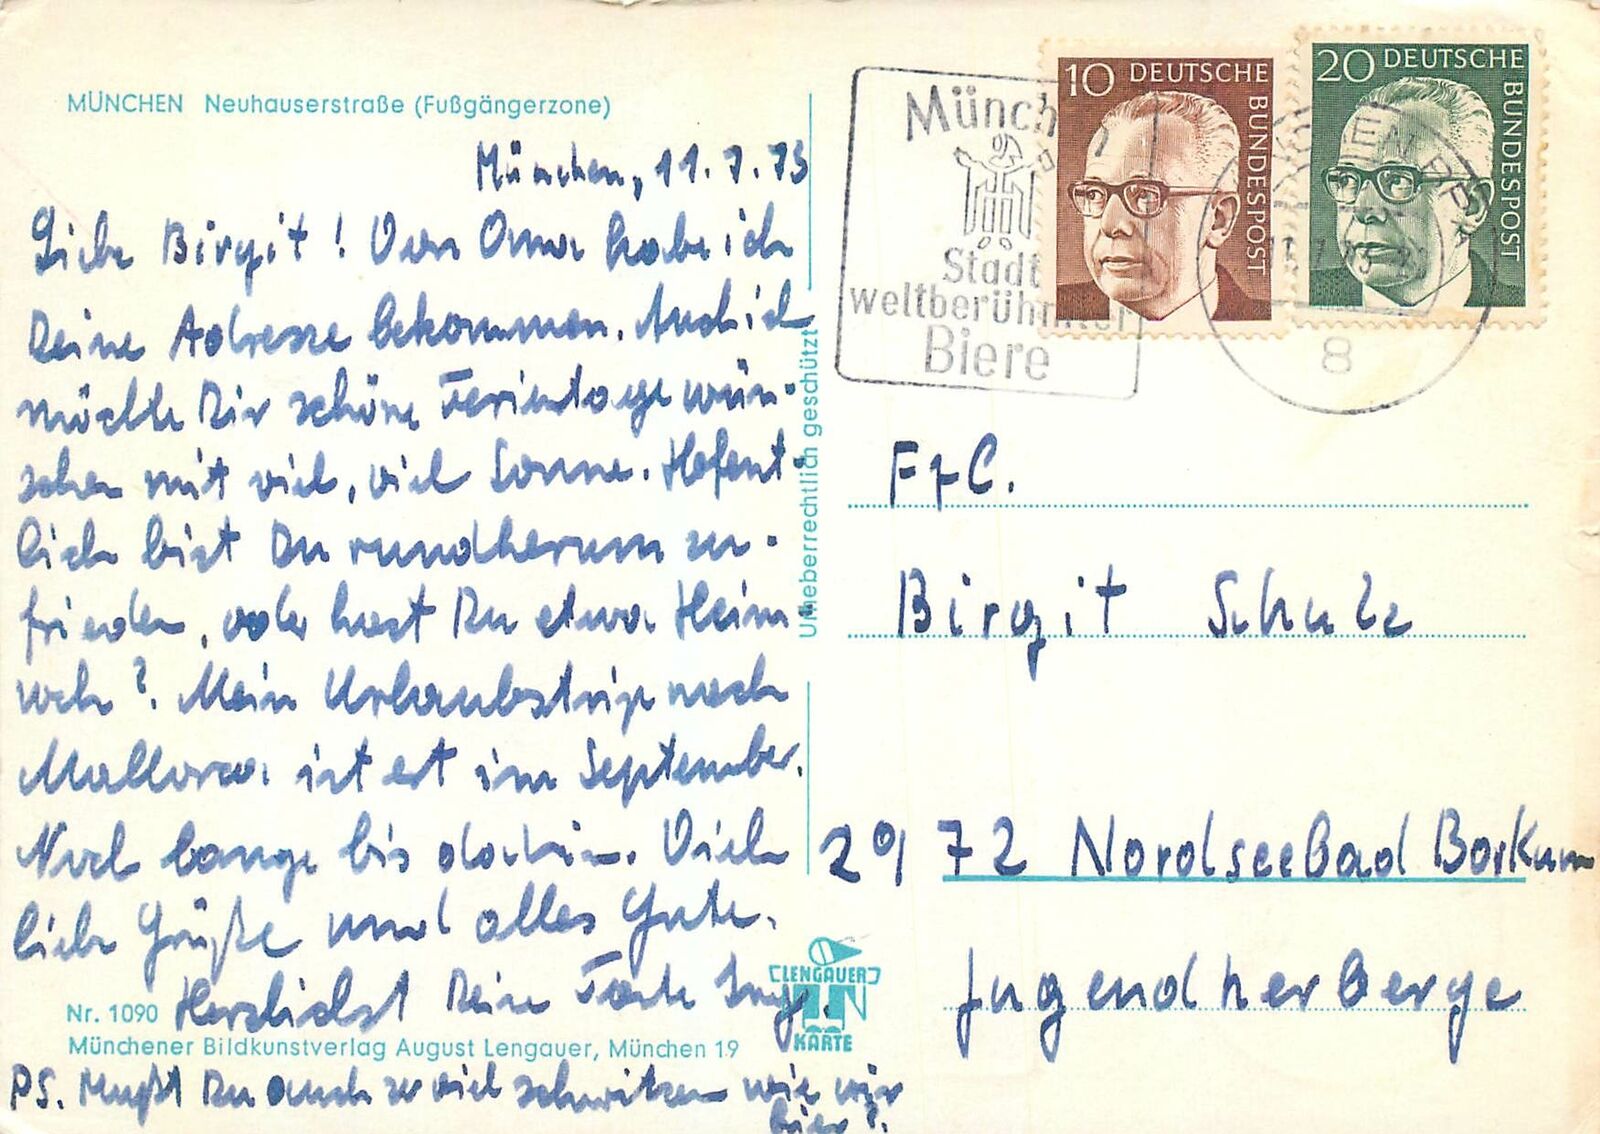 MÜNCHEN Neuhauserstraße (Fußgängerzone)
München, 11.7.73
Liebe Birgit! Von Oma habe ich
Deine Adresse bekommen. Auch ich
möchte Dir schöne Ferientage wün-
schen mit viel, viel Sonne. Hofent-
lich bist Du rundherum zu-
frieden, oder hast Du etwa Heim-
weh? Mein Urlaubstrip nach
Mallorca ist erst im September.
Noch lange bis dahin. Viele
liebe Grüße und alles Gute.
Herzlichst Deine Tante Inge.
PS. Mußt Du auch so viel schwitzen wie wir
hier?
Nr. 1090
Münchener Bildkunstverlag August Lengauer, München 19
LENGAUER
KARTE
Urheberrechtlich geschützt
München
Stadt
weltberühmter
Biere
10 DEUTSCHE
BUNDESPOST
20 DEUTSCHE
BUNDESPOST
8
Birgit Schulz
2972 Nordseebad Borkum
Jugendherberge